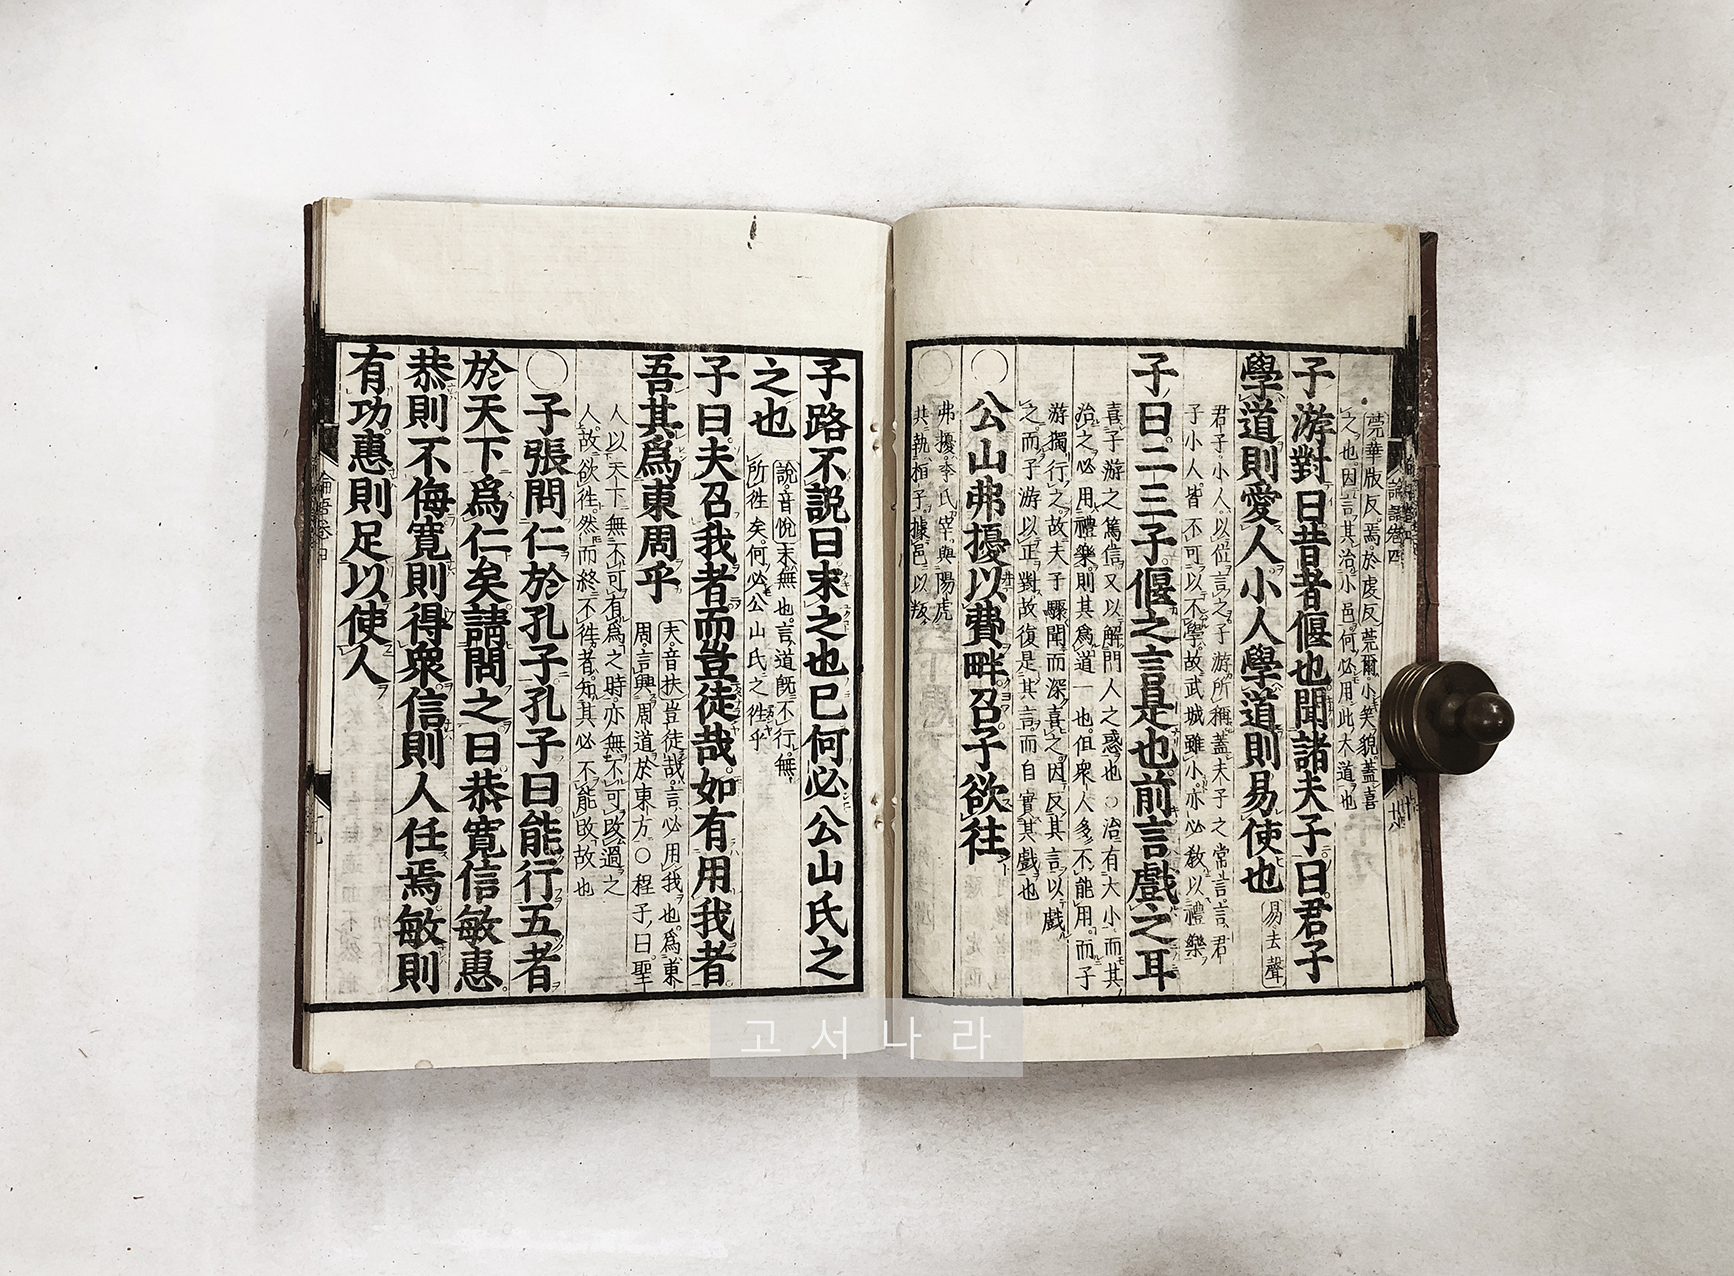 莞華版反焉於虔反莞爾小笑貌蓋喜
之也因言其治小邑何必用此大道也
子游對曰昔者偃也聞諸夫子曰君子
學道則愛人小人學道則易使也
易去聲
君子小人以位言之子游所稱蓋夫子之常言言君
子小人皆不可以不學故武城雖小亦必敎以禮樂
子曰二三子偃之言是也前言戲之耳
喜子游之篤信又以解門人之惑也○治有大小而其
治之必用禮樂則其爲道一也但衆人多不能用而子
游獨行之故夫子驟聞而深喜之因反其言以戲
之而子游以正對故復是其言而自實其戲也
○公山弗擾以費畔召子欲往
弗擾季氏宰與陽虎
共執桓子據邑以叛
子路不説曰末之也已何必公山氏之
之也
說音悅末無也言道旣不行無
所徃矣何必公山氏之徃乎
子曰夫召我者而豈徒哉如有用我者
吾其爲東周乎
夫音扶豈徒哉言必用我也爲東
周言興周道於東方○程子曰聖
人以天下無不可有爲之時亦無不可改過之
人故欲徃然而終不徃者知其必不能改故也
○子張問仁於孔子孔子曰能行五者
於天下爲仁矣請問之曰恭寬信敏惠
恭則不侮寬則得衆信則人任焉敏則
有功惠則足以使人
論語卷四
고서나라